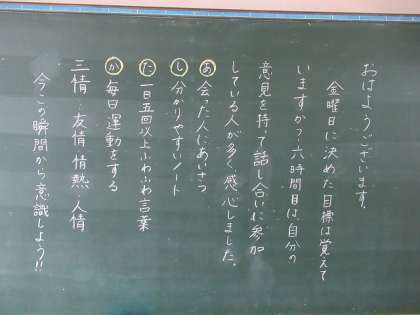 おはようございます。
金曜日に決めた目標は覚えて
いますか？六時間目は、自分の
意見を持って話し合いに参加
している人が多く感心しました。
あ 会った人にあいさつ
し 分かりやすいノート
た 一日五回以上ふわふわ言葉
か 毎日運動をする
三情…友情・情熱・人情
今この瞬間から意識しよう!!